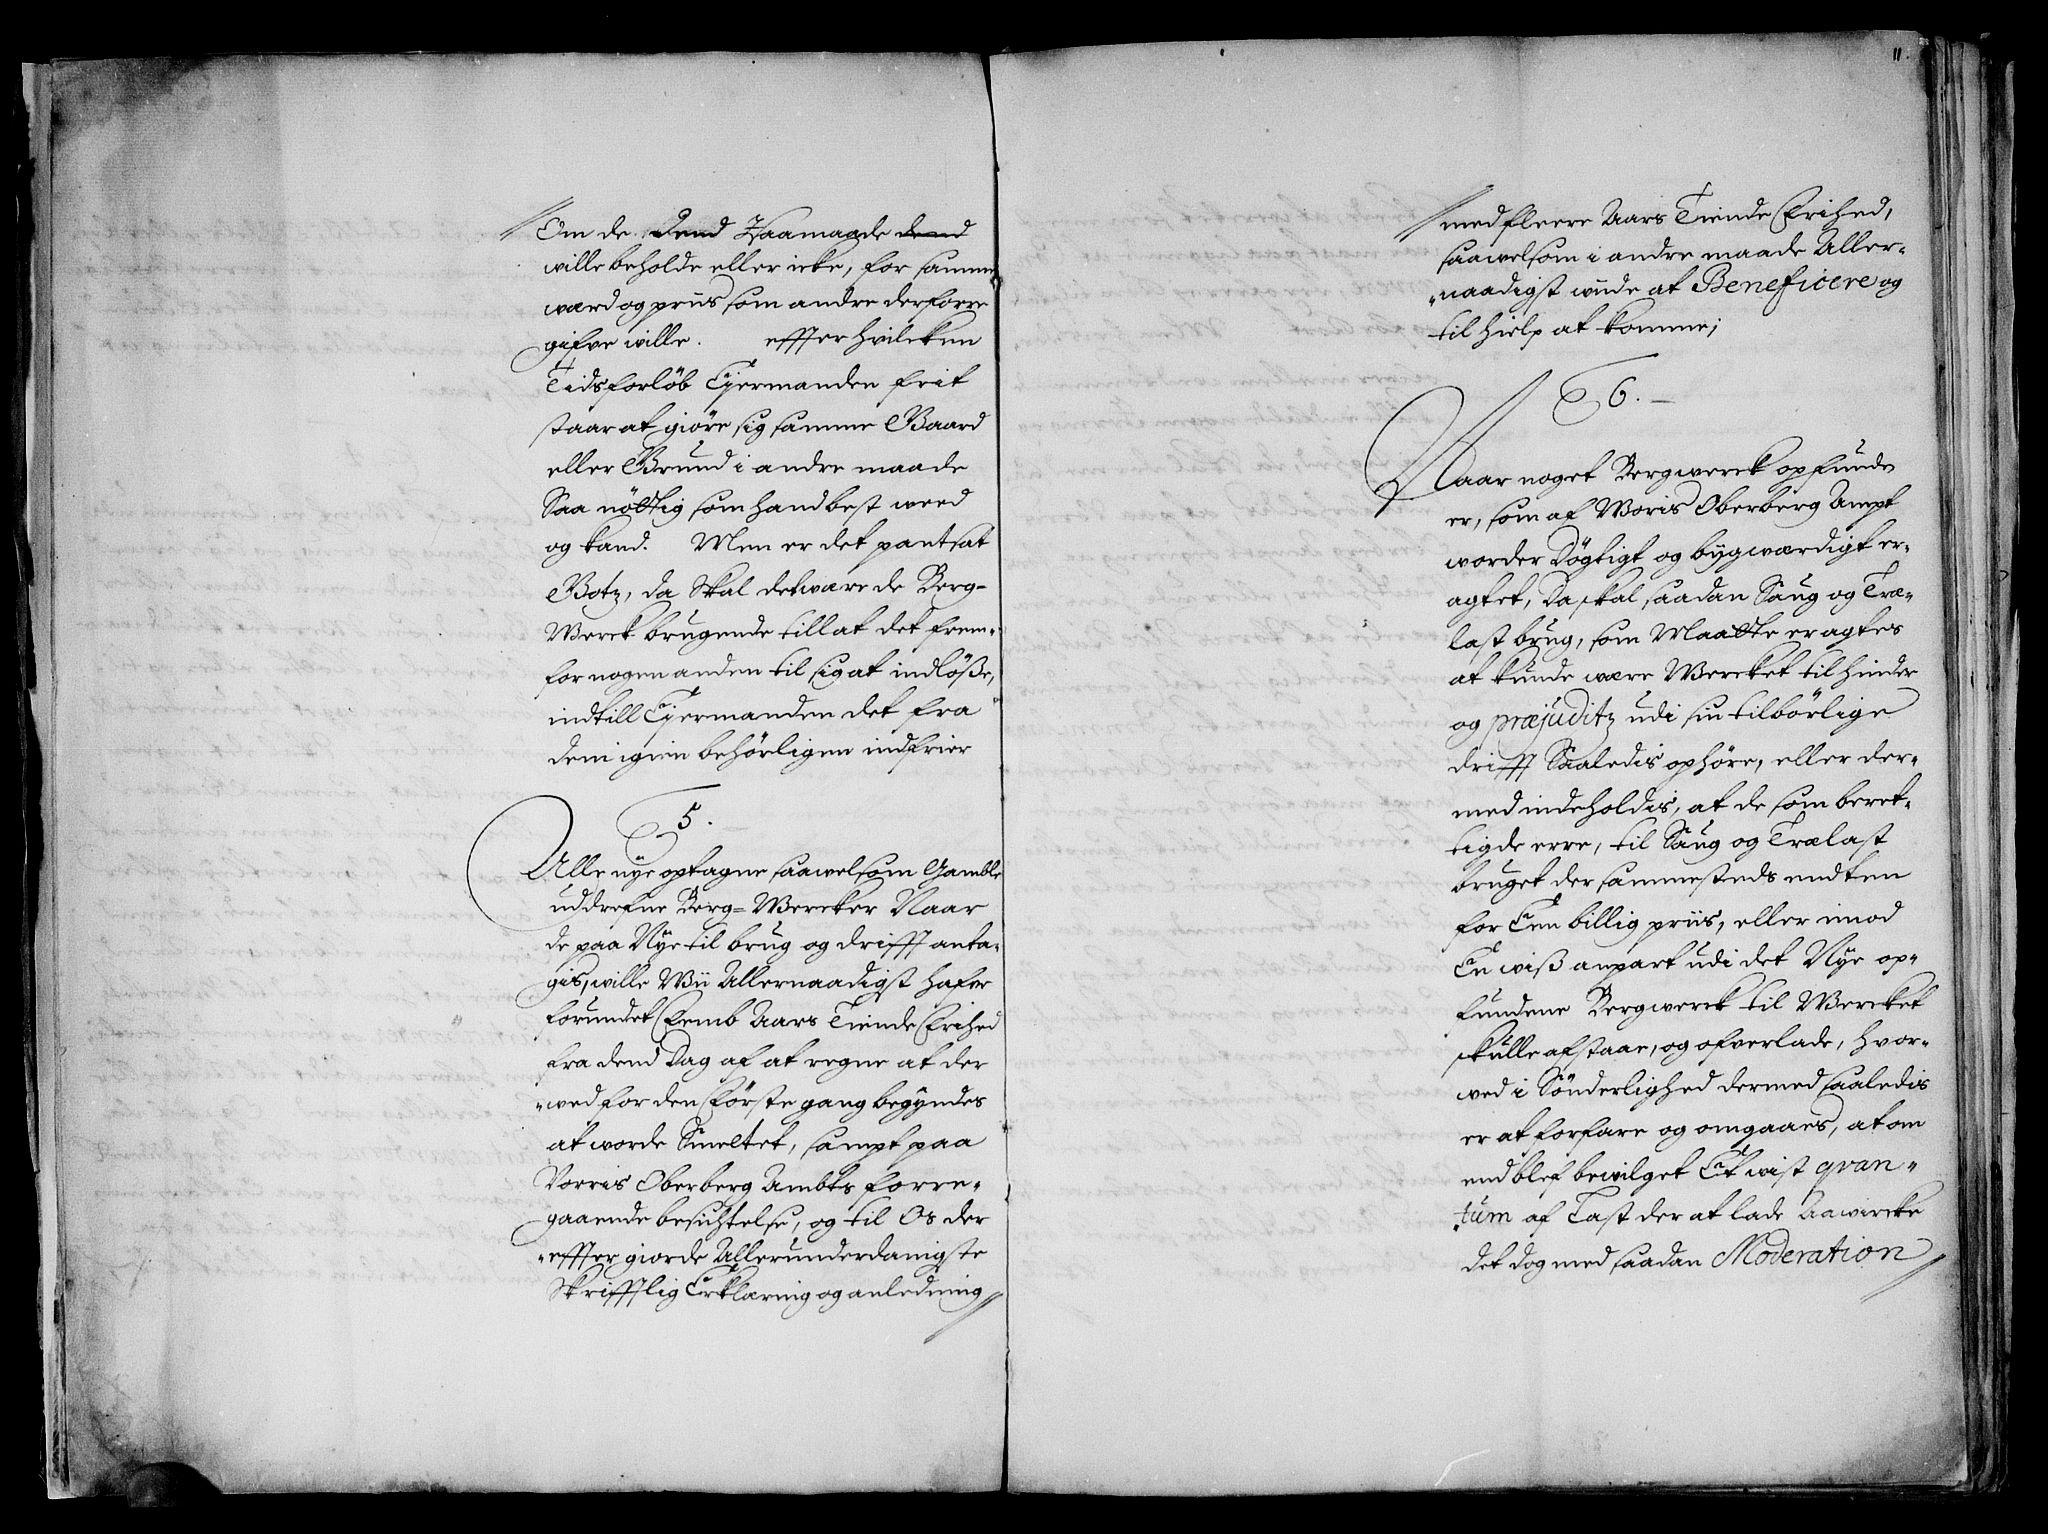 Om de dend Haamagde dend
wille beholde eller icke, for samme
wærd og priis som andre derforre
gifve wille. effter hvilcken
Tidsforlöb Ejermanden frit
staar at giöre sig samme Gaard
eller Grund i andre maade
Saa nöttig som hand best weed
og kand. Men er det pantsat
Godtz, da Skal det være de Berg-
Werck brugende till at det frem-
for nogen anden til sig at indlöße,
indtill Ejermanden det fra
dem igien behörligen indfrier
5.
Alle nye optagne saawelsom Gamble
uddrefne Berg-Wercker Naar
de paa Nye til brug og drifft anta-
gis, wille Wii Allernaadigst hafve
forundet Femb Aars Tiende Frihed
fra dend Dag af at regne at der
wed for den Förste gang begyndes
at worde Smeltet, sampt paa
Vorris Oberberg Ambts forre-
gaaende besichtelse, og til Os der
effter giorde Allerunderdanigste
Skrifftlig Erklæring og anledning
11.
med fleere Aars Tiende Frihed,
saawelsom i andre maade Aller-
naadigst wiide at Beneficere og
til hielp at komme;
6.
Naar noget Bergwerck opfunde
er, som af Woris Oberberg Ampt
worder Dögtigt og bygwærdigt er-
agtet, Da skal saadan Saug og Træ-
last brug, som Maatte eragtes
at kunde wære Wercket til hinder
og præjuditz udi sin tilbörlige
drifft Saaledis ophöre, eller der-
med indeholdis, at de som beret-
tigde erre, til Saug og Trælast
bruget der sammesteds endten
for Een billig priis, eller imod
En wiß anpart udi det Nye op-
fundene Bergwerck til Wercket
skulle afstaae, og ofverlade, hvor-
ved i Sönderlighed dermed saaledis
er at forfare og omgaaes, at om
end blef bewilget Et wist qvan-
tum af Last der at lade Aawircke
det dog med saadan Moderation